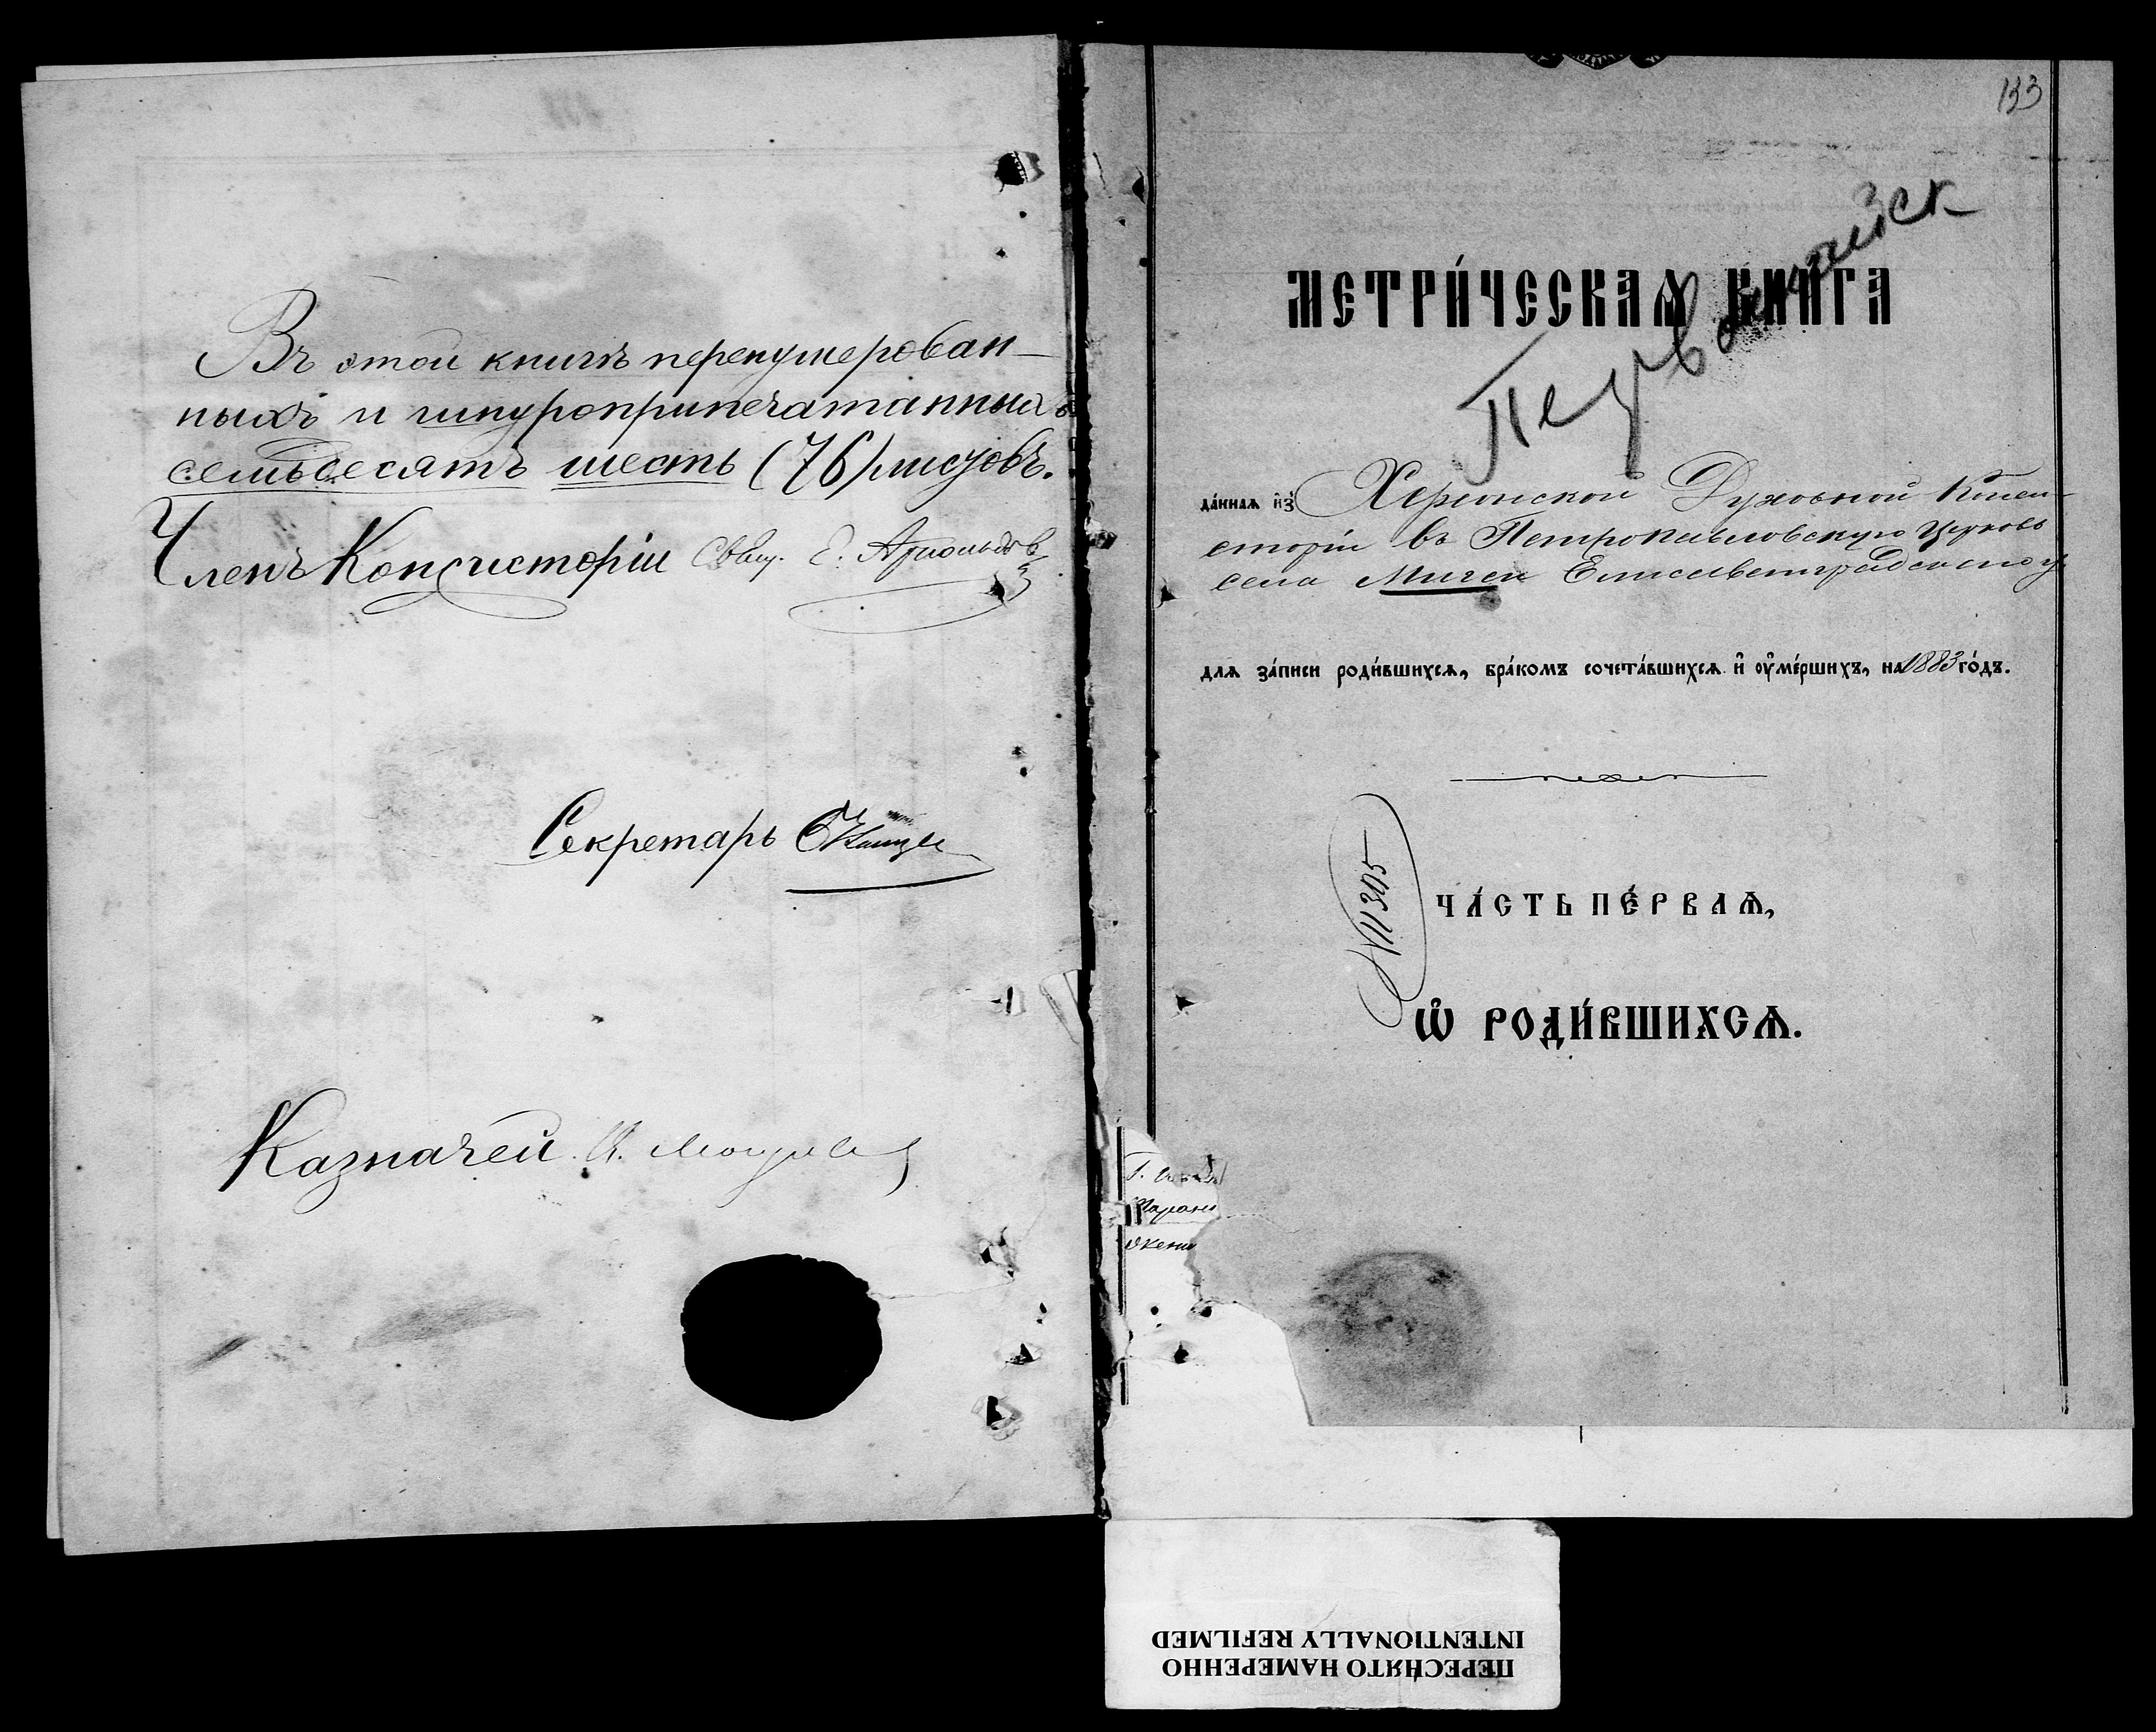 Въ этой книгѣ перенумерован-
ныхъ и шнуроприпечатанныхъ
семьдесятъ шесть (76) листовъ.
Членъ Консисторіи Свящ.
Секретарь
Казначей
133
МЕТРИ́ЧЕСКАѦ КНИ́ГА
Первомайск
да́ннаѧ и҆з̾ Херсонской Духовной Консі-
сторіи въ Петропавловскую церковь
села Мигеи Елисаветградскаго у.
длѧ за́писи роди́вшихсѧ, бра́комъ сочета́вшихсѧ и҆ ѹ҆ме́ршихъ, на 1883 го́дъ.
№ 11305
ЧА́СТЬ ПЕ́РВАѦ,
Ѽ РОДИ́ВШИХСѦ.
ПЕРЕСНЯТО НАМЕРЕННО
INTENTIONALLY REFILMED